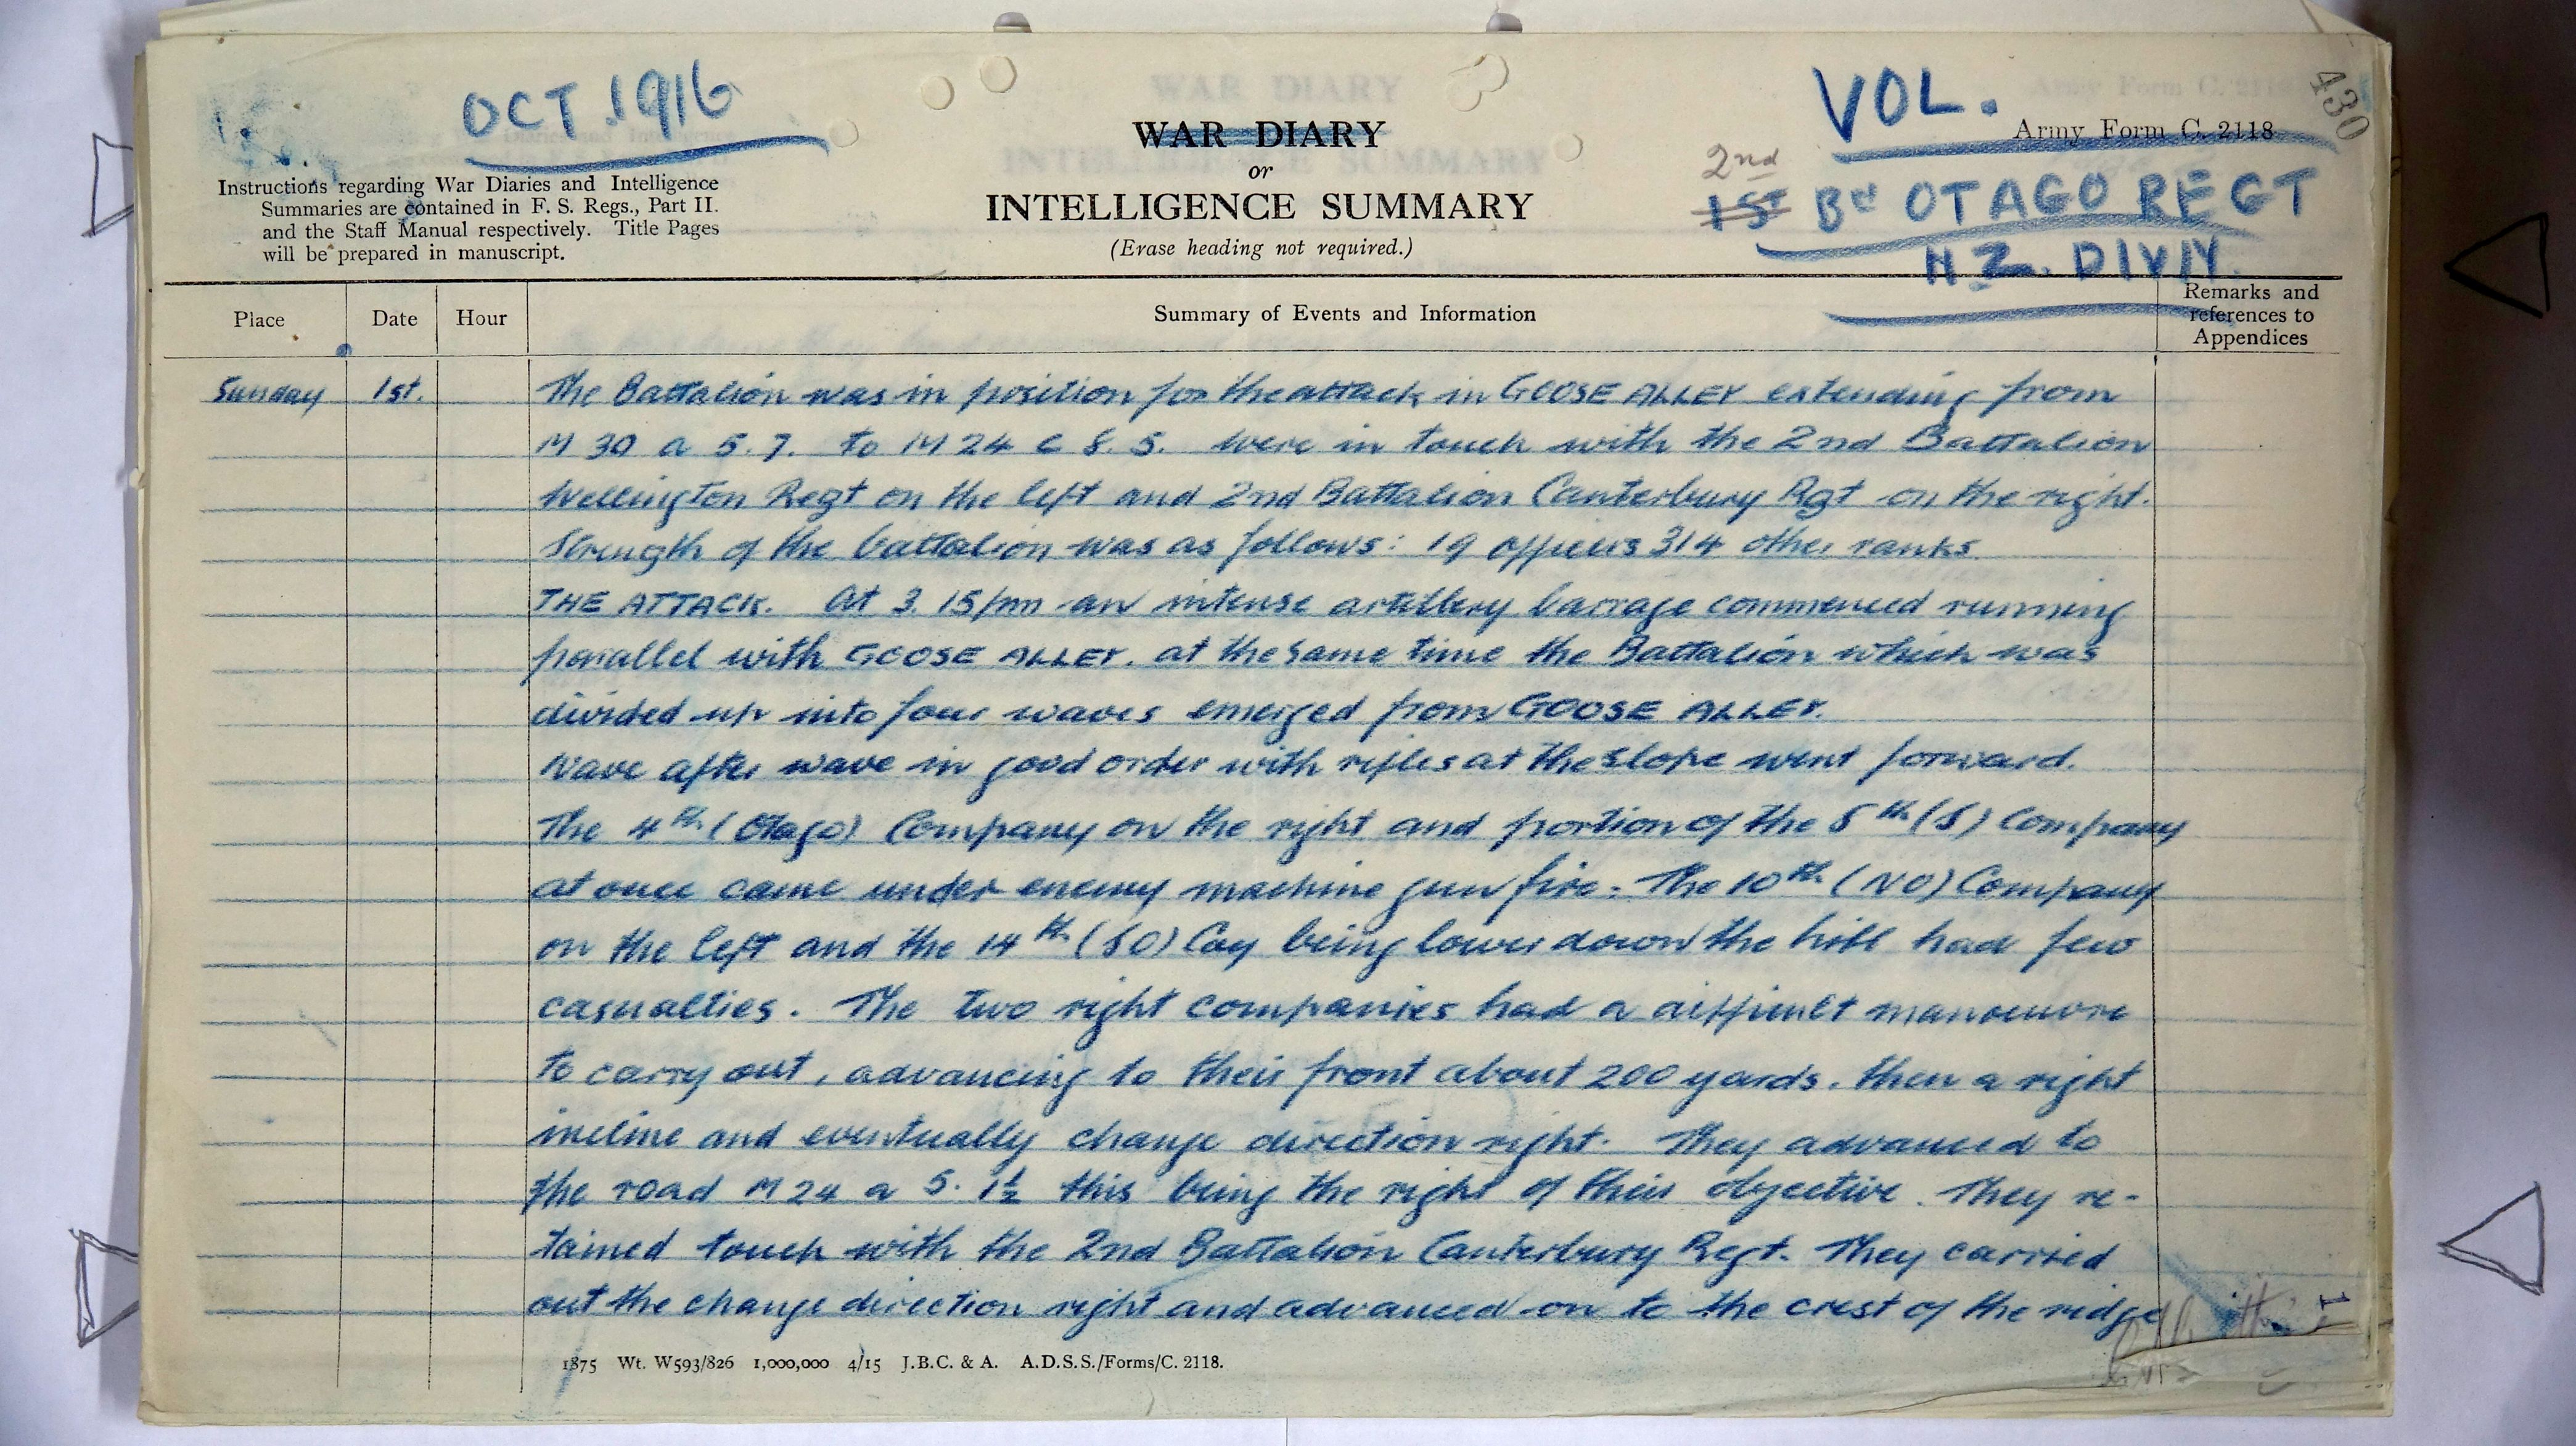 OCT. 1916
VOL.
430
WAR DIARY
Army Form C. 2118
or
2nd
INTELLIGENCE SUMMARY
1ST Bn OTAGO REGT
(Erase heading not required.)
N.Z. DIVN.
Instructions regarding War Diaries and Intelligence
Summaries are contained in F. S. Regs., Part II.
and the Staff Manual respectively. Title Pages
will be prepared in manuscript.
Place Date Hour Summary of Events and Information Remarks and references to Appendices
Sunday 1st. The Battalion was in position for the attack in GOOSE ALLEY extending from
M 30 a 5.7. to M 24 c 8.5. were in touch with the 2nd Battalion
Wellington Regt on the left and 2nd Battalion Canterbury Rgt on the right.
Strength of the battalion was as follows: 19 officers 314 other ranks
THE ATTACK. At 3.15 pm an intense artillery barrage commenced running
parallel with GOOSE ALLEY. at the same time the Battalion which was
divided up into four waves emerged from GOOSE ALLEY.
Wave after wave in good order with rifles at the slope went forward.
The 4th (Otago) Company on the right and portion of the 8th (S) Company
at once came under enemy machine gun fire. The 10th (NO) Company
on the left and the 14th (SO) Coy being lower down the hill had few
casualties. The two right companies had a difficult manoeuvre
to carry out, advancing to their front about 200 yards. then a right
incline and eventually change direction right. They advanced to
the road M 24 a 5. 1½ this being the right of their objective. They re-
tained touch with the 2nd Battalion Canterbury Regt. They carried
out the change direction right and advanced on to the crest of the ridge
1
1875 Wt. W593/826 1,000,000 4/15 J.B.C. & A. A.D.S.S./Forms/C. 2118.